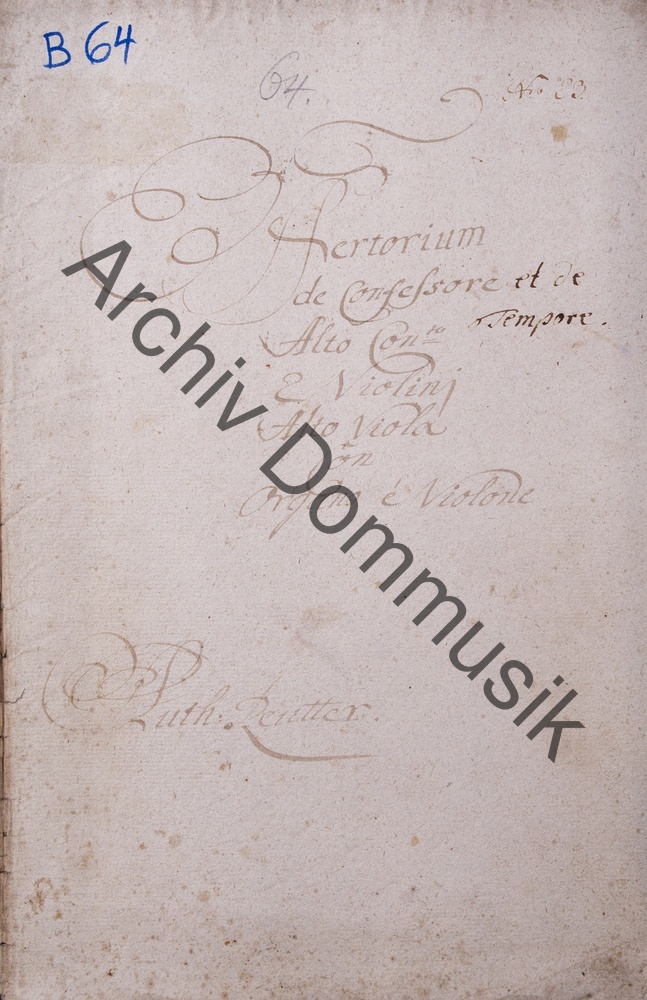 B 64
64.
No 23
Offertorium
de Confessore et de
Tempore.
Alto Conto
2 Violinj
Alto Viola
Con
Organo è Violone
Auth: Reütter.
Archiv Dommusik